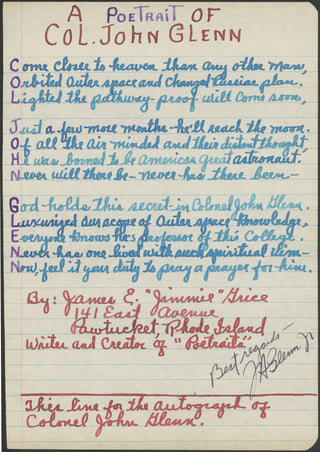 A POETRAIT OF
COL. JOHN GLENN
Come Closer to heaven than any other man,
Orbited Outer space and Changed Russias plan.
Lighted the pathway-proof will Come soon,
Just a few more months-he'll reach the moon.
Of all the Air minded and their distant thought
He was borned to be Americas great astronaut.
Never will there be-never-has there been-
God-holds this secret-in Colonel John Glenn.
Luxurized our scope of Outer space knowledge,
Everyone knows he's professor of this College.
Never-has one-lived with such spiritual
Now, feel it your duty to pray a prayer for-him.
By: James E. "Jimmie" Grice
141 East Avenue
Pawtucket, Rhode Island
Writer and Creator of "Poetraits"
Best regards-
JHGlenn Jr
This line for the autograph of
Colonel John Glenn.